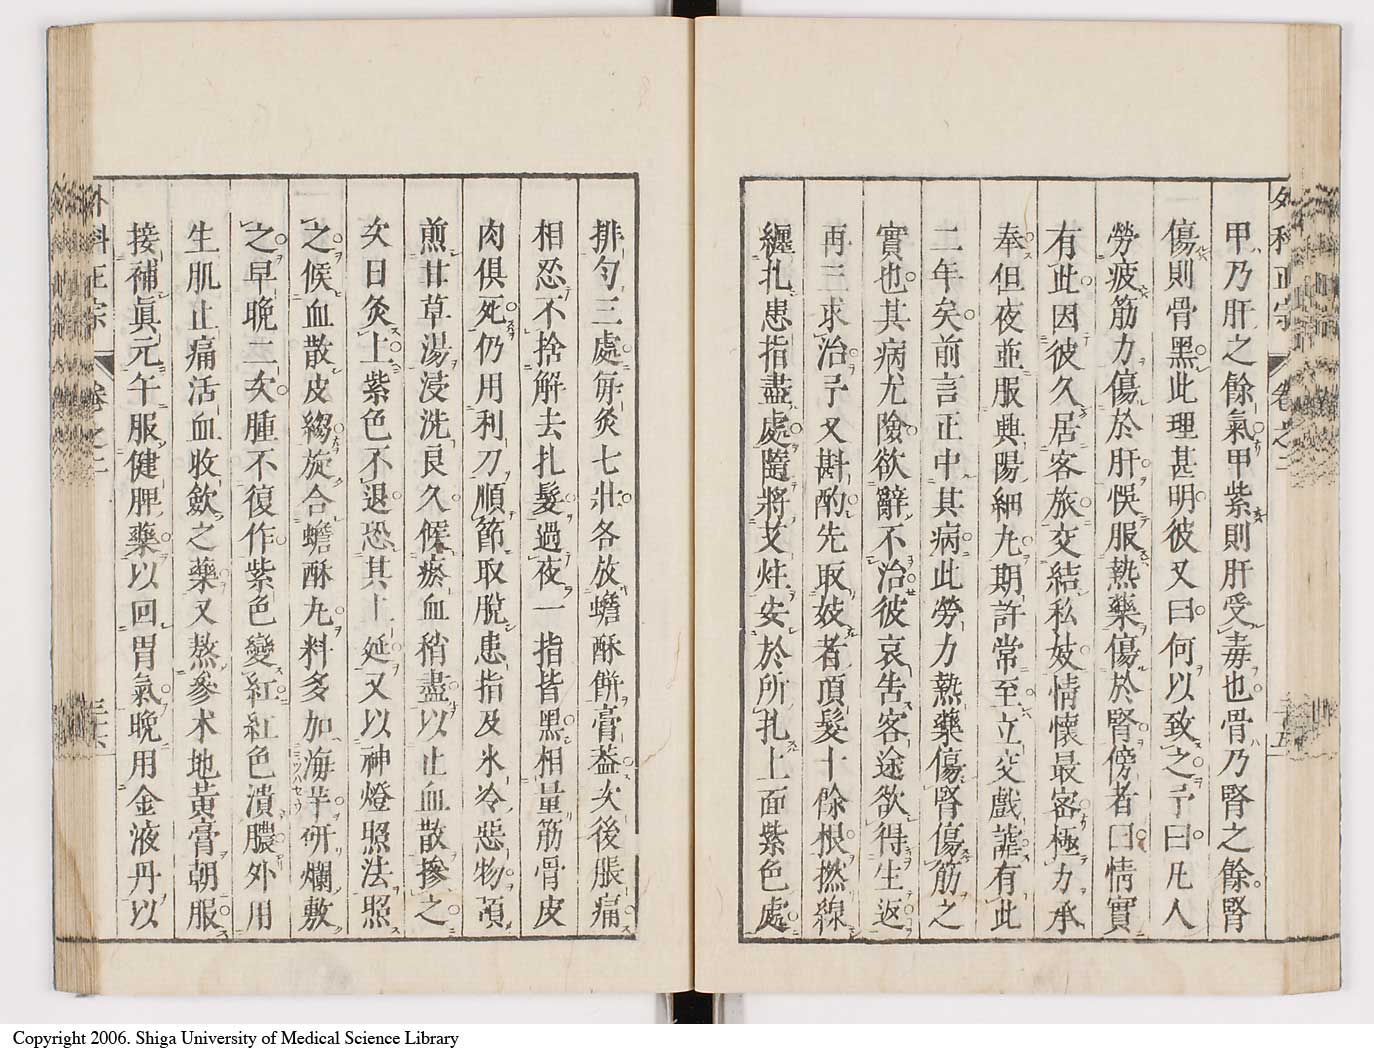 外科正宗 卷之二
甲乃肝之餘氣甲紫則肝受毒也骨乃腎之餘腎
傷則骨黑此理甚明彼又曰何以致之予曰凡人
勞疲筋力傷於肝悞服熱藥傷於腎傍者曰情實
有此因彼久居客旅交結私妓情懷最密極力承
奉但夜並服興陽細丸期許常至立交戲謔有此
二年矣前言正中其病此勞力熱藥傷腎傷筋之
實也其病尤險欲辭不治彼哀告客途欲得生返
再三求治予又斟酌先取妓者頂髮十餘根撚線
纏扎患指盡處隨將艾炷安於所扎上面紫色處
排勻三處每灸七壯各放蟾酥餅膏蓋次後脹痛
相忍不捨解去扎髮過夜一指皆黑相量筋骨皮
肉俱死仍用利刀順節取脫患指及氷冷惡物預
煎甘草湯浸洗良久候瘀血稍盡以止血散摻之
次日灸上紫色不退恐其上延又以神燈照法照
之候血散皮縐旋合蟾酥丸料多加海羊研爛敷
之早晚二次腫不復作紫色變紅紅色潰膿外用
生肌止痛活血收斂之藥又熬參术地黃膏朝服
接補眞元午服健脾藥以回胃氣晚用金液丹以
外科正宗 卷之二
Copyright 2006. Shiga University of Medical Science Library